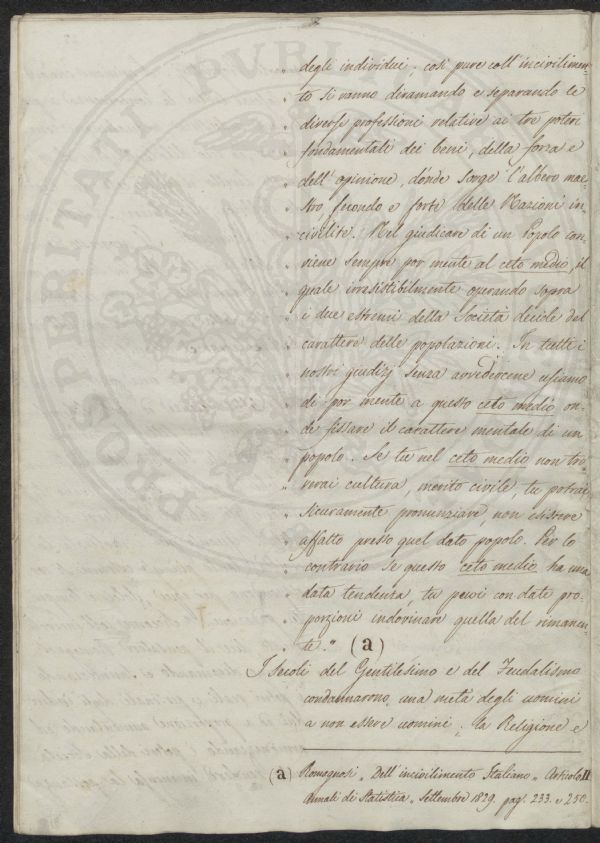 degli individui; così pure coll'incivilimen-
" to si vanno diramando e separando le
" diverse professioni relative ai tre poteri
" fondamentali dei beni, della forza e
" dell'opinione, donde sorge l'albero mae-
" stro fecondo e forte delle Nazioni in-
" civilite. Nel giudicare di un Popolo con-
" viene sempre por mente al ceto medio, il
" quale irresistibilmente operando sopra
" i due estremi della Società decide del
" carattere delle popolazioni. In tutti i
" nostri giudizj senza avvedercene usiamo
" di por mente a questo ceto medio on-
" de fissare il carattere mentale di un
" popolo. Se tu nel ceto medio non tro-
" verai cultura, merito civile, tu potrai
" sicuramente pronunziare, non esistere
" affatto presso quel dato popolo. Per lo
" contrario se questo ceto medio ha una
" data tendenza, tu puoi con date pro-
" porzioni indovinare quella del rimanen-
" te." (a)
I secoli del Gentilesimo e del Feudalismo
condannarono una metà degli uomini
a non essere uomini; la Religione e
(a) Romagnosi "Dell'incivilimento Italiano" Articolo II
Annali di Statistica, Settembre 1829. pag. 233. e 250.
PROSPERITATI PVBLICAE